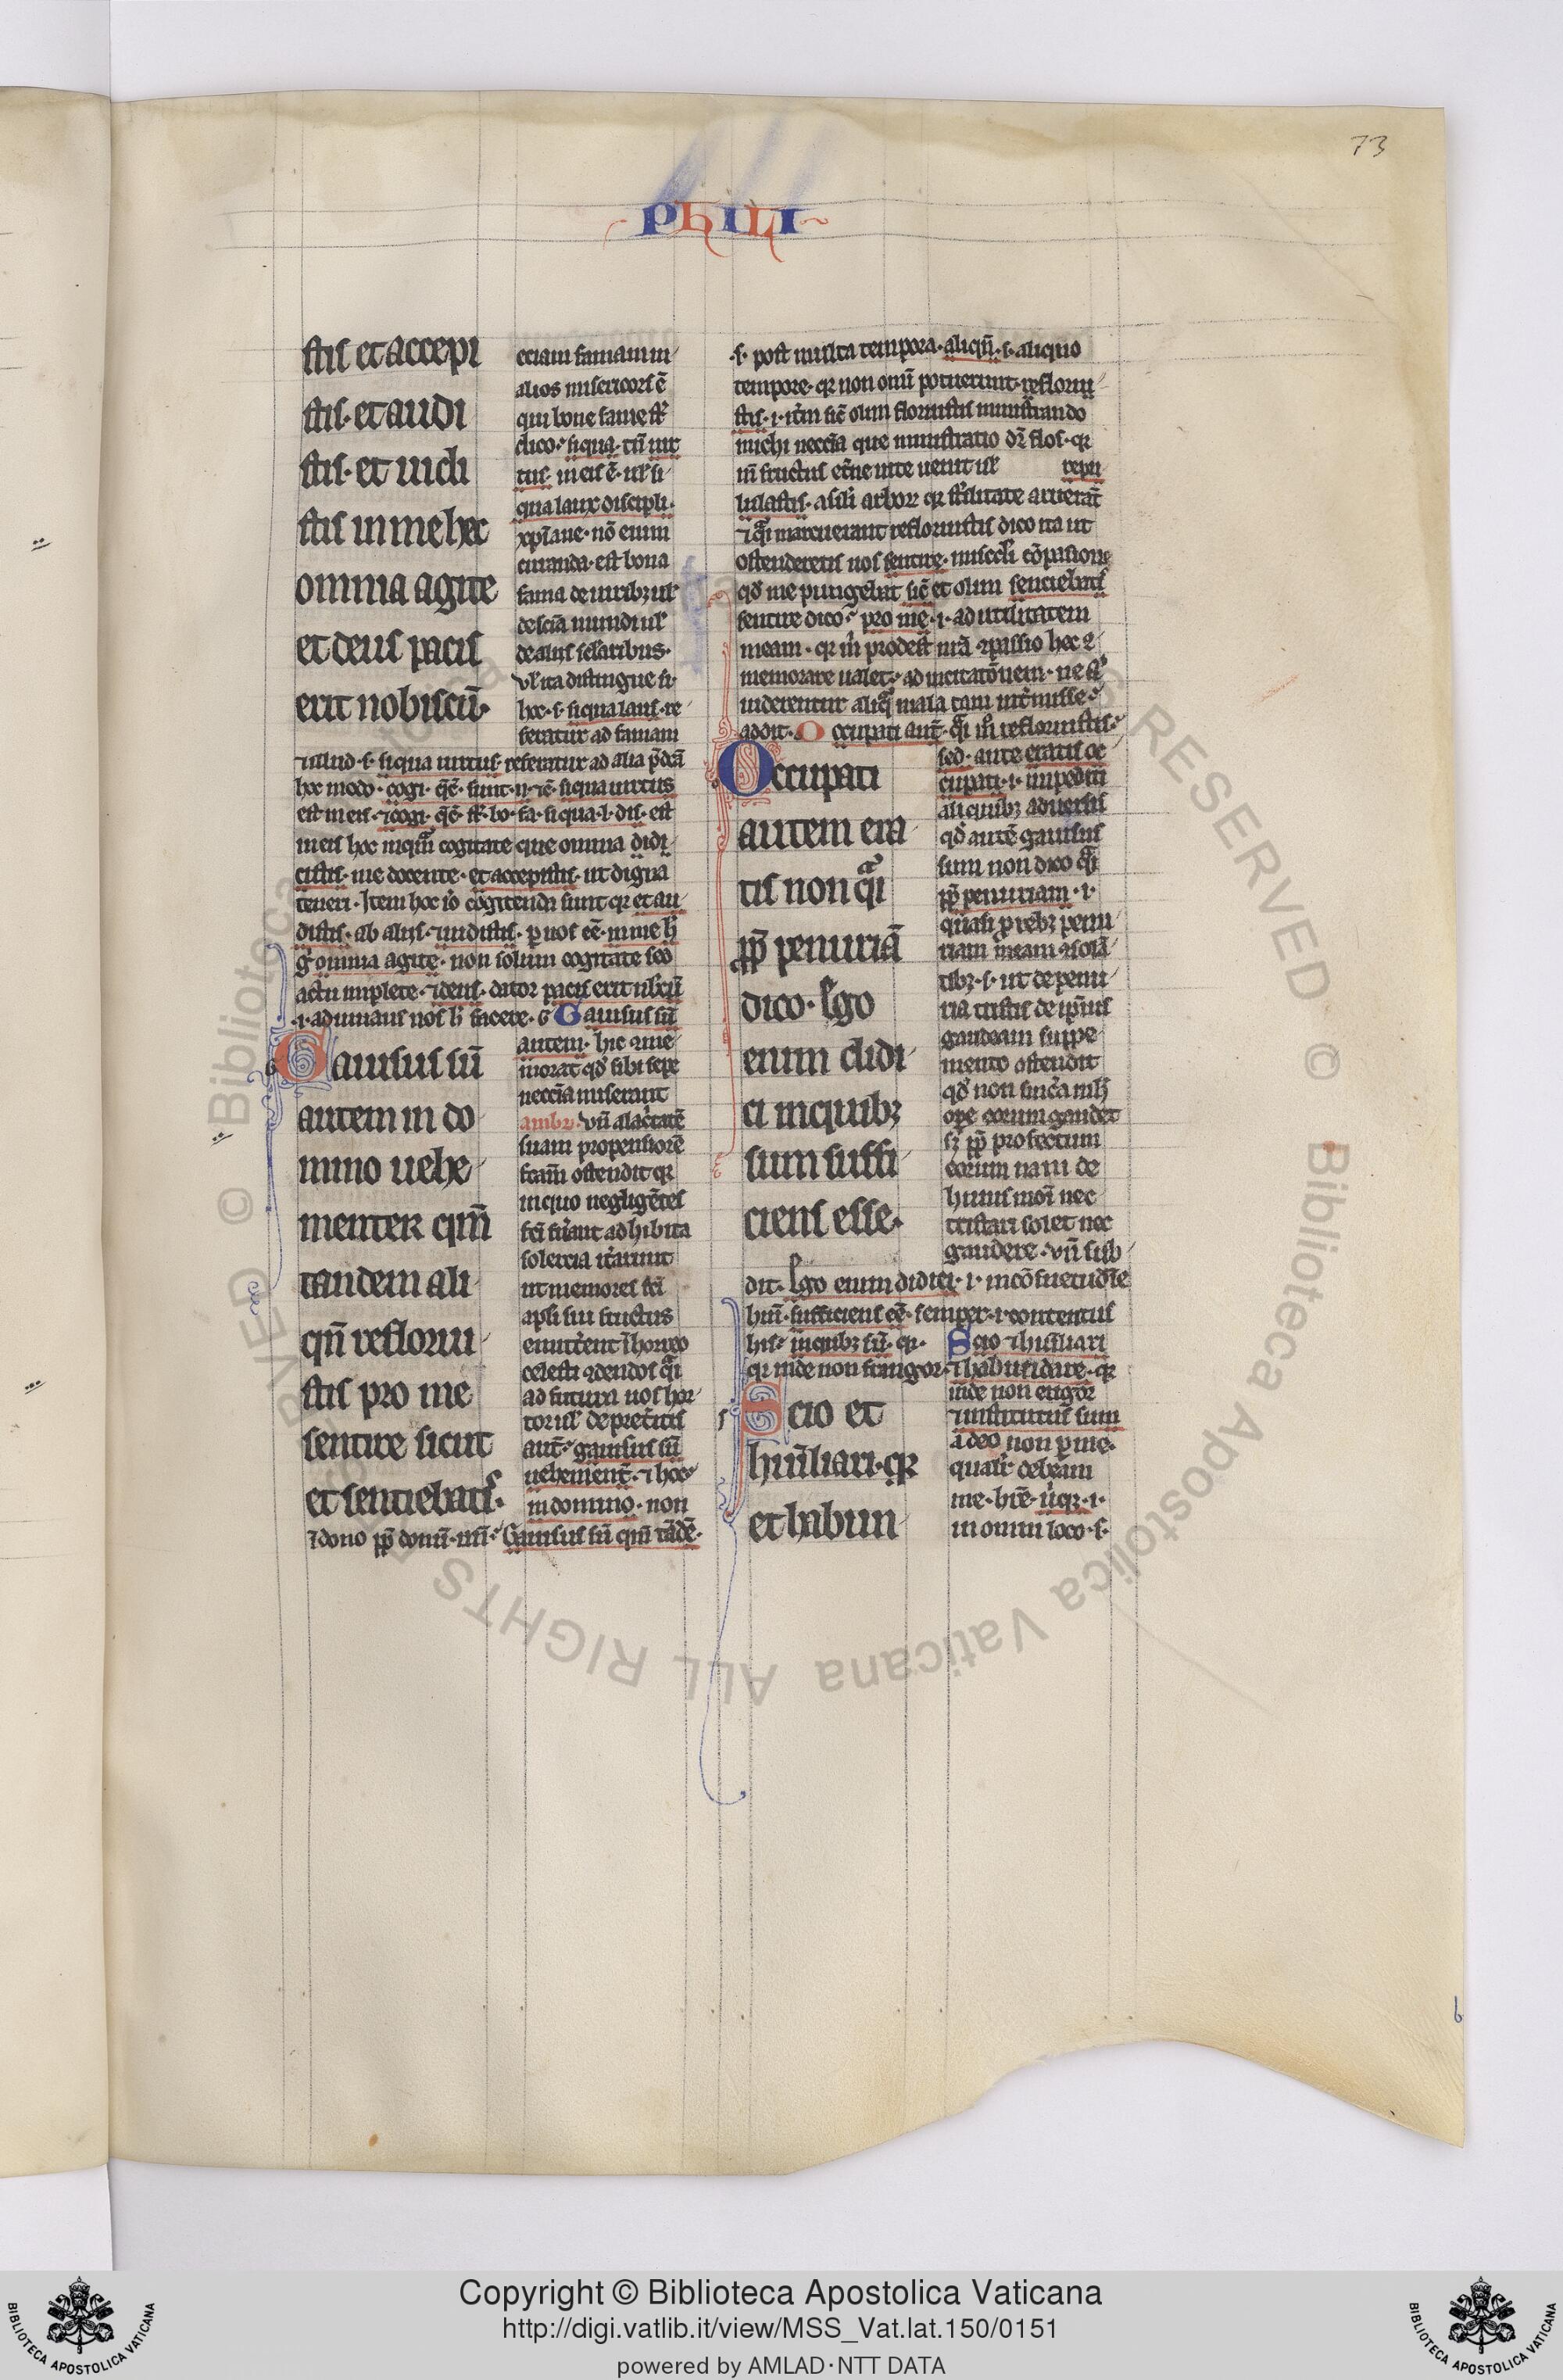 73
PHILI
stis et accepi
stis· et audi
stis· et uidi
stis in me hec
omnia agite
et deus pacis
erit nobiscū·
eciam famam in
alios misericors ē
qui bone fame
dico· siqua· tn̄ uir
tus· in eis ē· ul̄ si
qua laux discipli·
xp̄iane· nō enim
curanda· est bona
fama de uirib; ul̄
de sciā mundi ul̄
de aliis sclaribus·
vl̄ ita distingue si
hoc· s· siqua laus· re
feratur ad famam
⁊ illud· s· siqua uirtus· referatur ad alia p̄dcā
hoc modo· cogi· q̄c̄· sunt· siqua uirtus
est in eis· ⁊ cogi· q̄c̄· bo· fa· siqua· l· dis· est
in eis hoc inquā cogitate que omnia didi
cistis· me docente· et accepistis· ut digna
teneri· Item hoc iō cogitenda sunt qꝛ et au
distis· ab aliis· ⁊ uidistis· p uos eē· in me h̄
g° omnia agite· non solum cogitate sed
actu implete· ⁊ deus· dator pacis erit ubcū
·i· adiuuans uos h̄ facere· G Gauisus sū
Gauisus sū
autem in do
mino uehe
menter qm̄
tandem ali
qn̄ reflorui
stis pro me
sentire sicut
et sentiebatis·
autem· hic ꝯme
morat qd̄ sibi sepe
neccīa miserant
ambr· vn̄ alac̄tatē
suam propensiorē
fcam̄ ostendit qꝛ
in quo negligētes
fc̄i fūant adhibita
solercia it̄arunt
ut memores fc̄i
apl̄i sui fructus
emitt̄ent ī horreo
celesti ꝯdendos
ad futura uos hor
tor ul̄ de pret̄itis
aut̄· gauisus sū
uehement̄· ⁊ hoc
in domino· non
ī dono pp̄ donū· Gauisus sū qm̄ tādē·
·s· post multa tempora· aliqn̄· s· aliquo
tempore· qꝛ non omī potuerunt· reflorui
stis· i· it̄m sic̄ olim floruistis ministrando
michi neccīa que ministratio dr̄ flos· qꝛ
in fructus et̄ne uite uenit repu
lulastis· a sil̄i arbor qꝛ st̄ilitate aruerāt
⁊ marcuerant refloruistis dico ita ut
ostenderetis uos sentire· cōpasione
qd̄ me pungebat sic̄ et olim sentiebatis
sentire dico· pro me· i· ad utilitatem
meam· qꝛ m̄ prodest ꝯpassio hec
memorare ualet· ad incitatōnem· ne
uiderentur mala tam int̄misisse·
addit· Occupati aut̄· refloruistis·
Occupati
autem era
tis non q̄i
pp̄ penuriā
dico· Ego
enim didi
ci in quib;
sum suffi
ciens esse·
sed· ante eratis oc
cupati· i· impediti
aliquib; aduersis
qd̄ autē gauisus
sum non dico q̄i
pp̄ penuriam· i·
quasi p reb; penu
riam meam ꝯsolā
tib;· s· ut de penu
ria tristis de ip̄ius
gaudeam suppe
mento ostendit
qd̄ non sinc̄a
ope eorum gaudet
s; pp̄ profectum
eorum nam de
huius moi nec
tristari solet nec
gaudere· vn̄ sub
dit· Ego enim didici· i· in cōsuetudīe
hui· sufficiens eē· semper· i· contentus
his· in quib; sū· qꝛ· Scio ⁊ humiliari
qꝛ inde non frangor· ⁊ habundare· qꝛ
Scio et
hum̄liari· qꝛ
et habun
inde non erigor
⁊ institutus sum
a deo non p me·
qualit̄ debeam
me· hr̄e· i·
in omni loco· s·
b
Copyright © Biblioteca Apostolica Vaticana
http://digi.vatlib.it/view/MSS_Vat.lat.150/0151
powered by AMLAD·NTT DATA
BIBLIOTECA APOSTOLICA VATICANA
BIBLIOTECA APOSTOLICA VATICANA
© Biblioteca Apostolica Vaticana ALL RIGHTS RESERVED